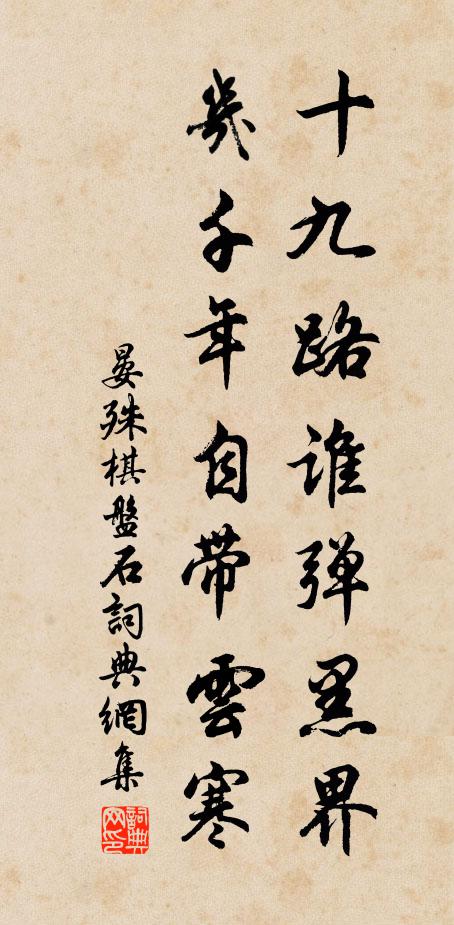 十九路谁弹黑界
几千年自带雲寒
晏殊棋盤石詞典網集
詞典网印